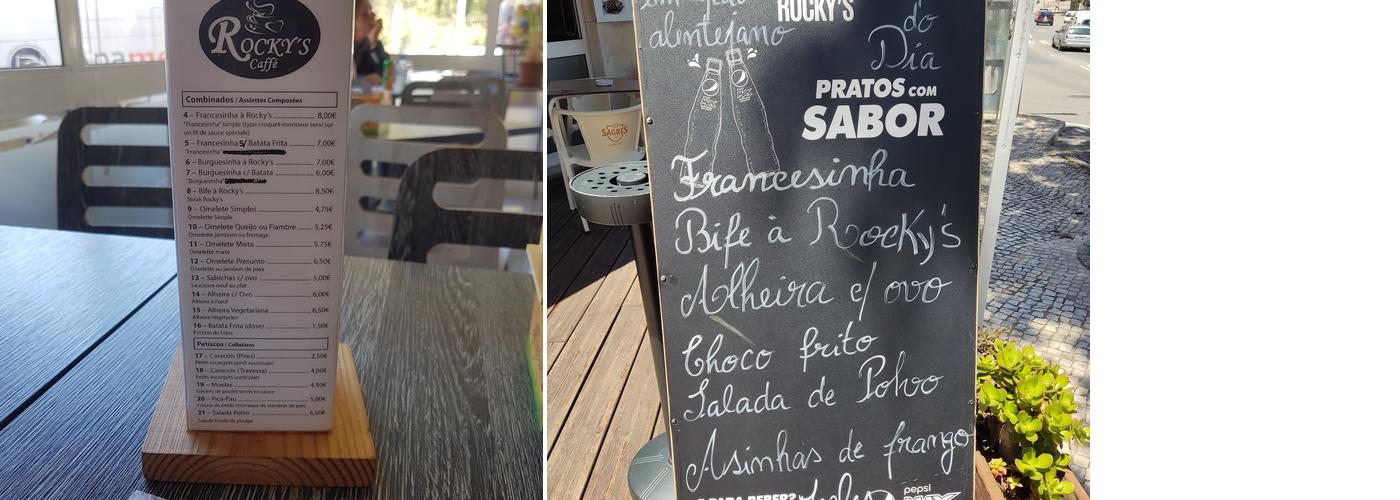 ROCKY'S
Caffé
Combinados / Assiettes Composées
4 – Francesinha à Rocky's 8,00€
"Francesinha" simple (type croquet-monsieur servi sur
un lit de sauce spéciale)
5 – Francesinha S/ Batata Frita 7,00€
"Francesinha"
6 – Burguesinha à Rocky's 7,00€
7 – Burguesinha c/ Batata 6,00€
"Burguesinha"
8 – Bife à Rocky's 8,50€
Steak Rocky's
9 – Omelete Simples 4,75€
Omelette Simple
10 – Omelete Queijo ou Fiambre 5,25€
Omelette jambom ou fromage
11 – Omelete Mista 5,75€
Omelette mixte
12 – Omelete Presunto 6,50€
Omelette au jambon de pays
13 – Salsichas c/ ovo 5,00€
Saucisses oeuf au plat
14 – Alheira c/ Ovo 6,00€
Alheira à l'œuf
15 – Alheira Vegetariana 6,50€
Alheira Végétarien
16 – Batata Frita (dose) 1,50€
Portion de frites
Petiscos / Collations
17 – Caracois (Pires) 2,50€
Petits escargots (petit soucoupe)
18 – Caracois (Travessa) 4,00€
Petits escargots (petit plat)
19 – Moelas 4,50€
Gésiers de poulet servis en sauce
20 – Pica-Pau 5,00€
Friture de petits morceaux de viandes de porc
21 – Salada Polvo 6,50€
Salade froide de poulpe
ROCKY'S
alentejano
do
Dia
PRATOS COM
SABOR
SAGRES
Francesinha
Bife à Rocky's
Alheira c/ ovo
Choco frito
Salada de Polvo
Asinhas de frango
PARA BEBER?
pepsi